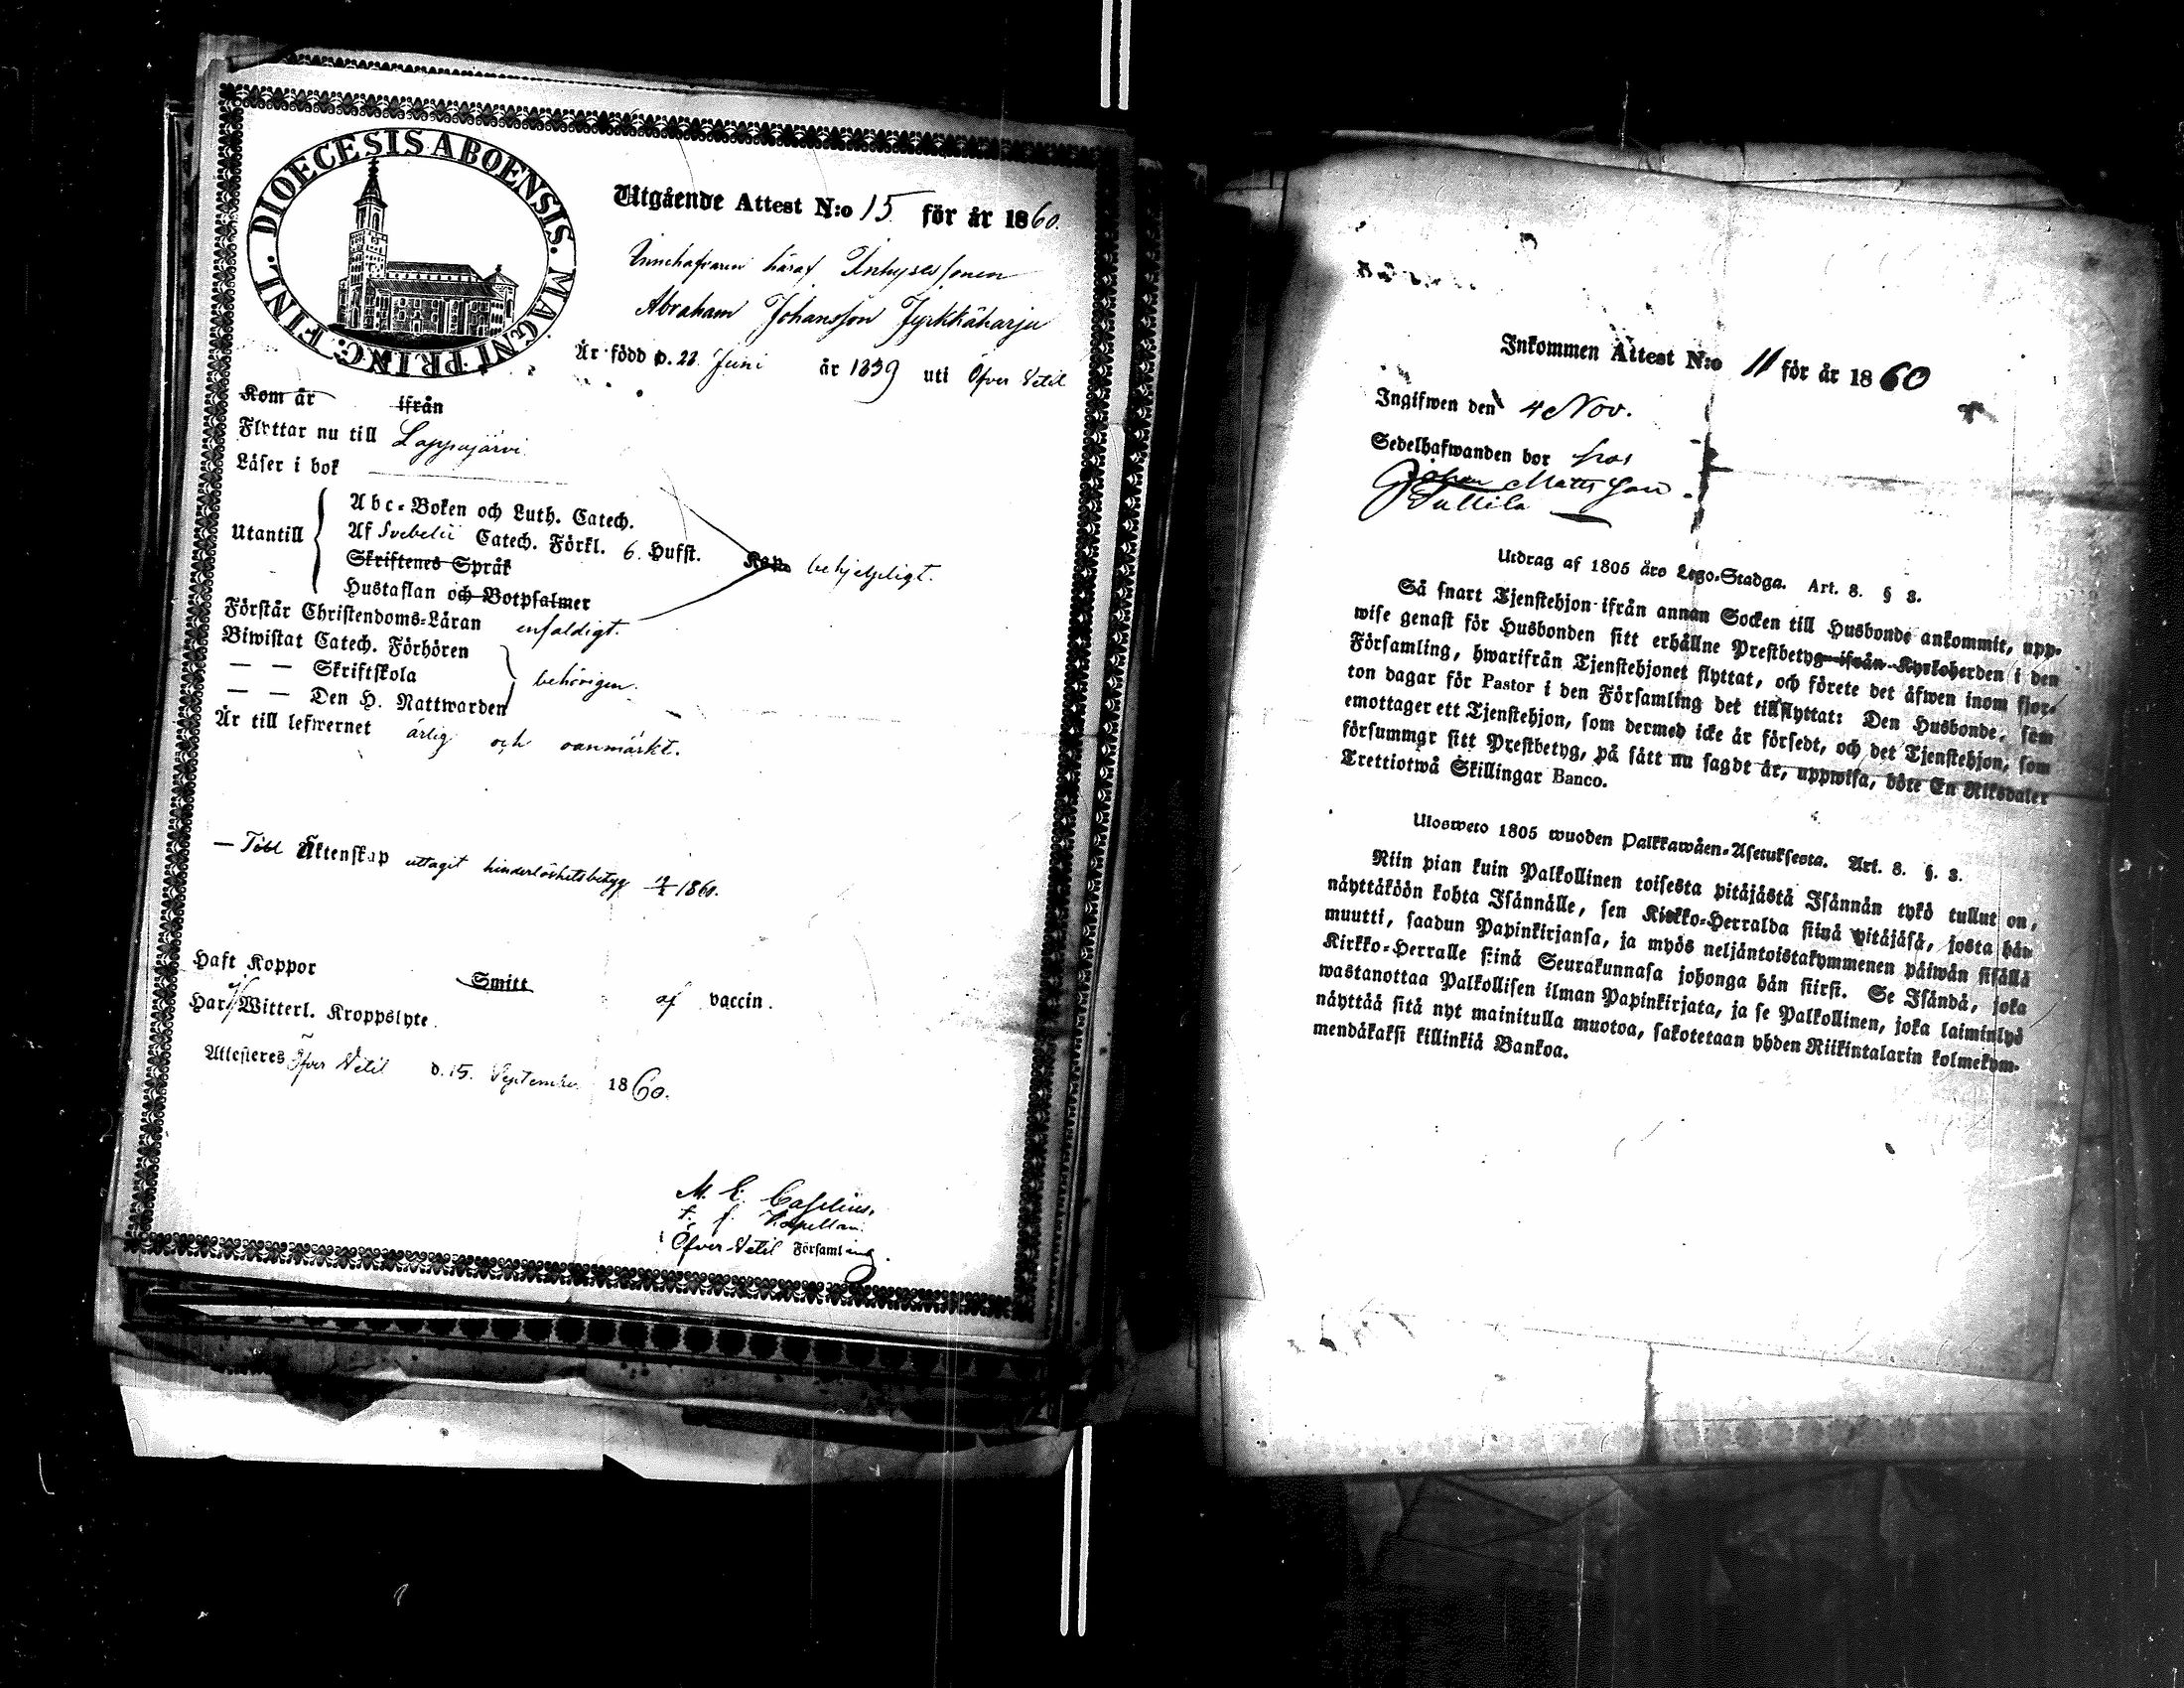 DIOECESIS ABOENSIS. MAGNI PRINC: FINL.
Utgående Attest N:o 15 för år 1860.
Innehafvaren häraf Inhysessonen
Abraham Johansson Jyrkkäharju
Är född d. 22 Juni år 1839 uti Öfver Vetil
Kom år ifrån
Flyttar nu till Lappajärvi
Läser i bok
Utantill
Abc-Boken och Luth. Catech.
Af Svebelii Catech. Förkl. 6. Hufst.
Skriftenes Språk
Kap. behjelpeligt.
Hustaflan och Botpsalmer
Förstår Christendoms-Läran enfaldigt.
Biwistat Catech. Förhören
— — Skriftskola behörigen.
— — Den H. Nattwarden
Är till lefwernet ärlig och oanmärkt.
— Till Äktenskap uttagit hinderlöshetsbetyg 1860.
Haft Koppor Smitt af vaccin.
Har ej Witterl. Kroppslyte.
Attesteras Öfver Vetil d. 15. September 1860.
M. E. Caselius.
t. f. Kapellan
i Öfver-Vetil Församling.
Inkommen Attest N:o 11 för år 1860
Ingifwen den 4 Nov.
Sedelhafwanden bor hos
Johan Mattsson
Tullila
Utdrag af 1805 års Lego-Stadga. Art. 8. § 8.
Så snart Tjenstehjon ifrån annan Socken till Husbonde ankommit, upp-
wise genast för Husbonden sitt erhållne Prestbetyg ifrån Kyrkoherden i den
Församling, hwarifrån Tjenstehjonet flyttat, och förete det äfwen inom fjor-
ton dagar för Pastor i den Församling det tillflyttat: Den Husbonde, som
emottager ett Tjenstehjon, som dermed icke är försedt, och det Tjenstehjon, som
försummar sitt Prestbetyg, på sätt nu sagdt är, uppwisa, böte En Riksdaler
Trettiotwå Skillingar Banco.
Ulosweto 1805 wuoden Palkkawäen-Asetuksesta. Art. 8. §. 8.
Niin pian kuin Palkollinen toisesta pitäjästä Isännän tykö tullut on,
näyttäköön kohta Isännälle, sen Kirkko-Herralda siinä pitäjäsä, josta hän
muutti, saadun Papinkirjansa, ja myös neljäntoistakymmenen päiwän sisällä
Kirkko-Herralle siinä Seurakunnasa johonga hän siirsi. Se Isändä, joka
wastanottaa Palkollisen ilman Papinkirjata, ja se Palkollinen, joka laiminlyö
näyttää sitä nyt mainitulla muotoa, sakotetaan yhden Riikintalarin kolmekym-
mendäkaksi killinkiä Bankoa.